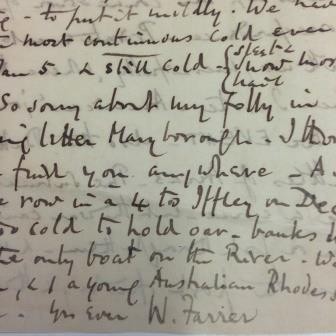 - to put it mildly. We have
most continuous cold ever
Jan 5. & still cold - sleet & snow mor
hail
So sorry about my folly in
ing letter Maryborough. I tho
find you anywhere - A.
row in a 4 to Iffley on Dec
too cold to hold oar - banks
the only boat on the River. W
& a young Australian Rhodes
Yrs Ever W. Farrier